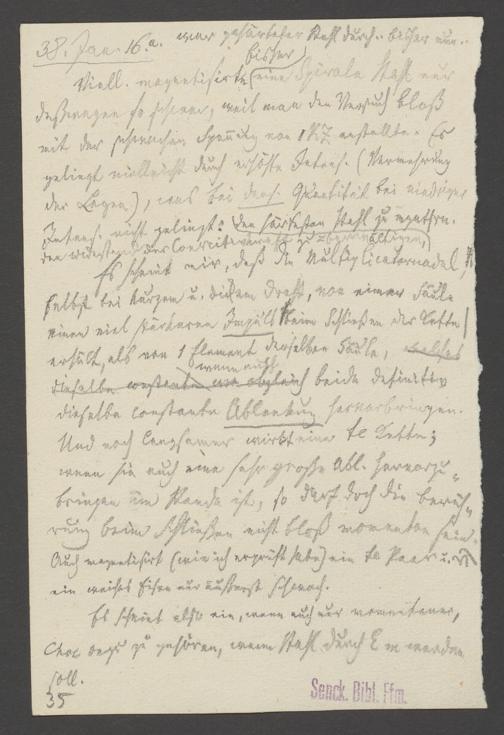 38. Jan. 16. a. war gehärteter Stahl durch .. bisher nur ..
bisher
Viell. magnetisirte eine Spirale Stahl nur
deßwegen so schwer, weil man den Versuch bloß
mit der schwachen Spannung von 1 anstellte. Es
gelingt vielleicht durch erhöhte Intens. (Vermehrung
der Lagen), was bei der Quantität bei niedriger
Intens. nicht gelingt: den härtesten Stahl zu
den widerstand der Coercitivkraft zu
Es scheint mir, daß die Multiplicatornadel,
selbst bei kurzem u. dickem Draht, von einer Säule
einen viel stärkeren Impuls beim Schließen der Kette
erhält, als von 1 Element derselben Säule, welches
dieselbe constante wenn auch beide definitiv
dieselbe constante Ablenkung hervorbringen.
Und noch langsamer wirkt eine te Kette;
wenn sie auch eine sehr große Abl. hervorzu-
bringen im Stande ist, so darf doch die Berüh-
rung beim Schließen nicht bloß momentan sein.
Auch magnetisirt (wie ich geprüft habe) ein te Paar
ein weiches Eisen nur äußerst schwach.
Es scheint also ein, wenn auch nur momentaner,
Choc dazu zu gehören, wenn Stahl durch E m werden
soll.
35
Senck. Bibl. Ffm.